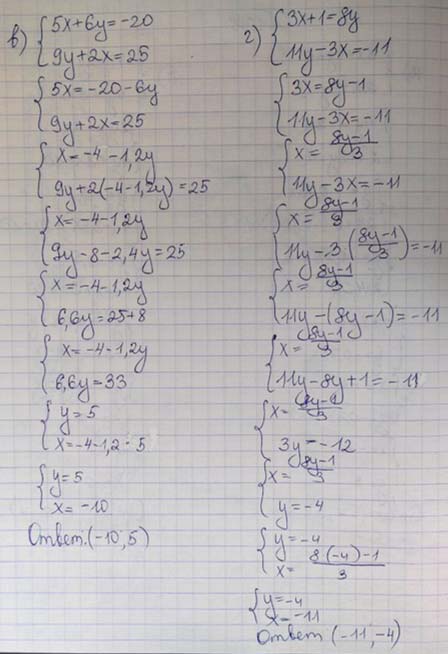 в) { 5x+6y=-20
9y+2x=25
{ 5x=-20-6y
9y+2x=25
{ x=-4-1,2y
9y+2(-4-1,2y)=25
{ x=-4-1,2y
9y-8-2,4y=25
{ x=-4-1,2y
6,6y=25+8
{ x=-4-1,2y
6,6y=33
{ y=5
x=-4-1,2·5
{ y=5
x=-10
Ответ:(-10;5)
г) { 3x+1=8y
11y-3x=-11
{ 3x=8y-1
11y-3x=-11
{ x=(8y-1)/3
11y-3x=-11
{ x=(8y-1)/3
11y-3((8y-1)/3)=-11
{ x=(8y-1)/3
11y-(8y-1)=-11
{ x=(8y-1)/3
11y-8y+1=-11
{ x=(8y-1)/3
3y=-12
{ x=(8y-1)/3
y=-4
{ y=-4
x=(8(-4)-1)/3
{ y=-4
x=-11
Ответ (-11,-4)